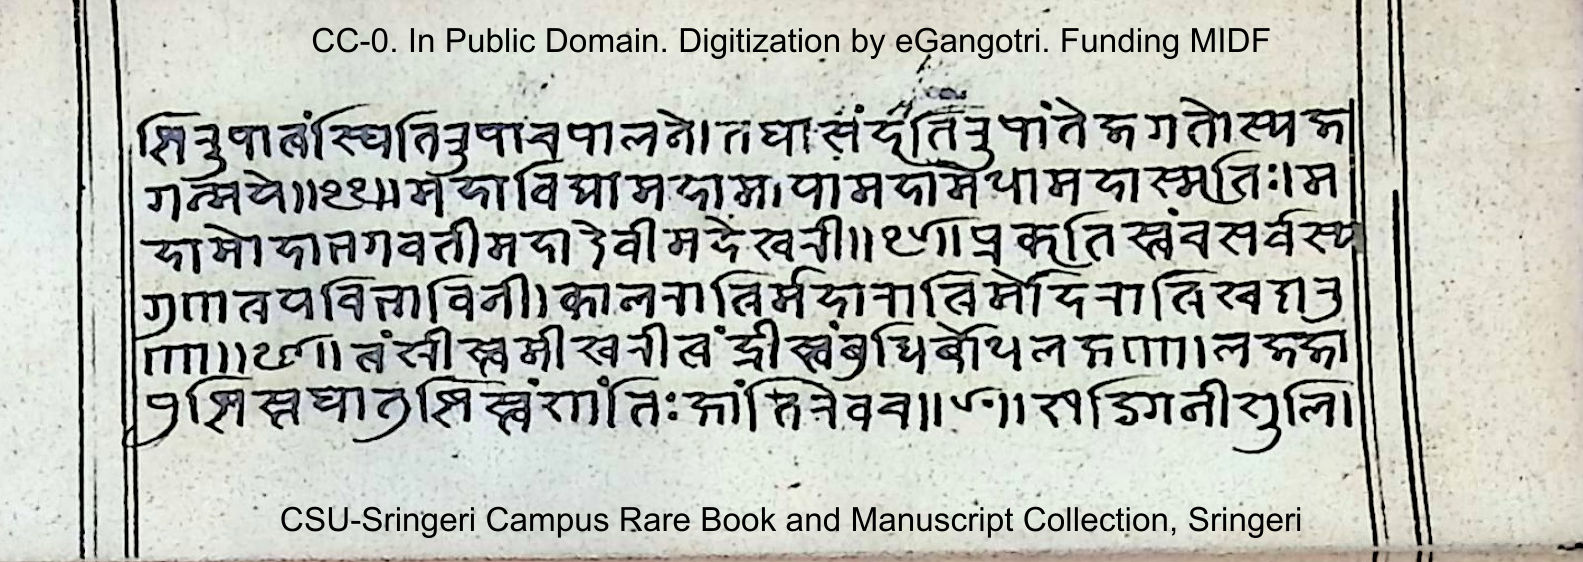 CC-0. In Public Domain. Digitization by eGangotri. Funding MIDF
ष्टिरुपात्वंस्थितिरुपाचपालने।तथासंहृतिरुपांतेजगतोस्यज
गन्मये॥ महाविद्यामहामायामहामेधामहास्मृतिः।म
हामोहाभगवतीमहादेवीमहेस्वरी॥ प्रकृतिस्त्वंचसर्वस्य
गुणत्रयविभाविनी।कालरात्रिर्महारात्रिर्मोहरात्रिश्चदारु
णा॥ त्वंश्रीस्त्वमीस्वरीत्वंह्रीस्त्वंबुधिर्बोधलक्षणा।लज्जा
पुष्टिस्तथातुष्टिस्त्वंशांतिःक्षांतिरेवच॥ खड्गिनीशुलि।
CSU-Sringeri Campus Rare Book and Manuscript Collection, Sringeri